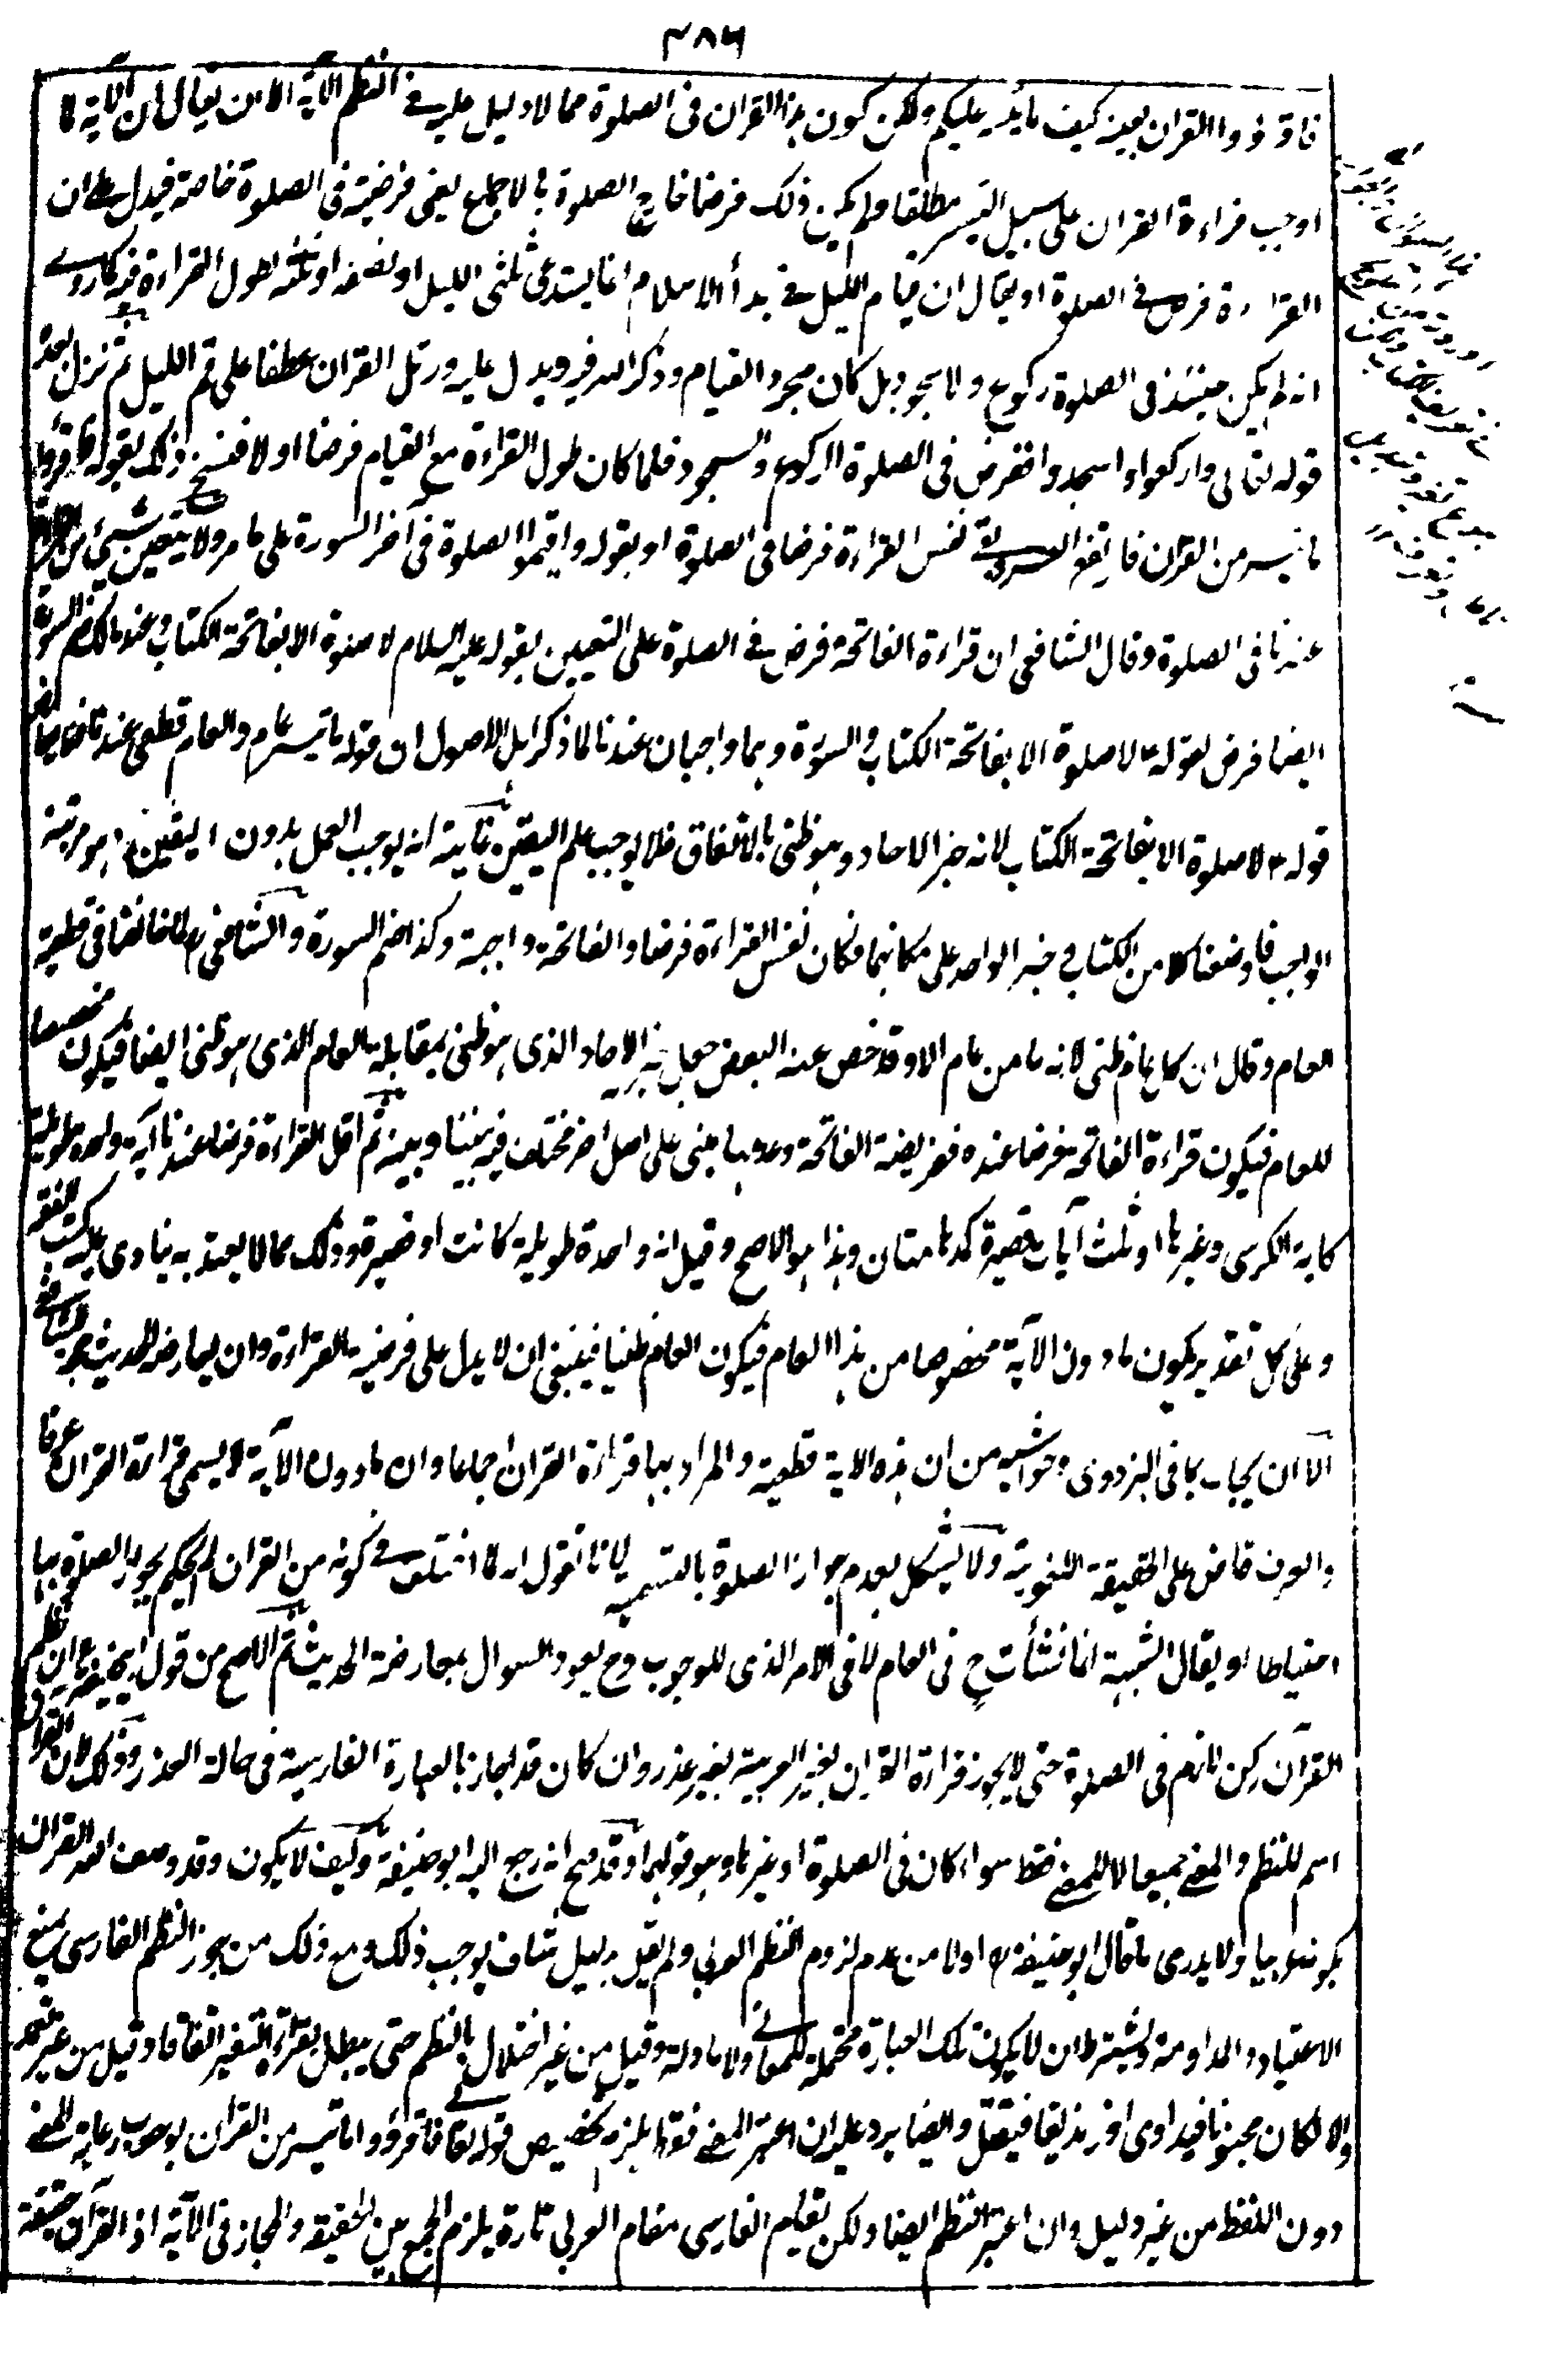 ٤٨٦
فاقرؤوا القران بعينه كيف ما تيسر عليكم ولكن كون هذا القران فى الصلوة مما لا دليل عليه فے النظم الآية الا ان يقال ان الآية لما
اوجب قراءة القران على سبيل التيسر مطلقا ولم يكن ذلك فرضا خارج الصلوة بالاجماع يعنى فرضيته فى الصلوة خاصة فيدل على ان
القراءة فرض فے الصلوة او يقال ان قيام الليل فے بدأ الاسلام انما يستدعى ثلثى الليل او نصفه او ثلثه لطول القراءة فيه كما روے
انه لم يكن حينئذ فى الصلوة ركوع ولا سجود بل كان مجرد القيام وذكر الله فيه ويدل عليه ورتل القران عطفا على قم الليل ثم نزل بعده
قوله تعالى واركعوا واسجدوا فافترض فى الصلوة الركوع والسجود فلما كان طول القراءة مع القيام فرضا اولا فنسخ ذلك بقوله فاقرؤا
ما تيسر من القران فا بقے نفس القراءة فرضا فى الصلوة او بقوله واقيموا الصلوة فى آخر السورة على ما مر ولا يتعين شيئ من القران
عندنا فى الصلوة وقال الشافعى ان قراءة الفاتحة فرض فے الصلوة على التعيين بقوله عليه السلام لا صلوة الا بفاتحة الكتاب وعند مالك ضم السورة
ايضا فرض لقوله ع لا صلوة الا بفاتحة الكتاب والسورة وهما واجبان عندنا لما ذكر اهل الاصول ان قوله ما تيسر عام والعام قطعى عندنا
قوله ع لا صلوة الا بفاتحة الكتاب لانه خبر الاحاد وهو ظنى بالاتفاق فلا يوجب علم اليقين غايته انه يوجب العمل بدون اليقين وهو مرتبة
الواجب فاوضعنا كلا من الكتاب وخبر الواحد على مكانهما فكان نفس القراءة فرضا والفاتحة واجبة وكذا ضم السورة والشافعى رح لما خالفنا فى قطعية
العام وقال ان كل عام ظنى لانه ما من عام الا وقد خص عنه البعض جعل خبر الاحاد الذى هو ظنى بمقابلة العام الذى هو ظنى ايضا فيكون مخصصا
للعام فيكون قراءة الفاتحة فرضا عنده ففريضة الفاتحة وعدمها مبنى على اصل اخر مختلف فيه بيننا وبينه ثم اقل القراءة فرضا عندنا آية واحدة طويلة
كاية الكرسى وغيرها او ثلث آيات قصيرة كمدهامتان وهذا هو الاصح وقيل انه واحدة طويلة كانت او قصيرة وذلك مما لا يعتد به ينادى عليه كتب الفقه
وعلى كل تقدير يكون ما دون الآية مخصوصا من هذا العام فيكون العام ظنيا فينبغى ان لا يدل على فرضية القراءة وان يعارضه الحديث حجة للشافعى
الا ان يجاب بما فى البزدوى وحواشيه من ان هذه الاية قطعية والمراد بها قراءة القران اجماعا وان ما دون الآية لا يسمى قراءة القران عرفا
والعرف قاض على الحقيقة اللغوية ولا يشكل بعدم جواز الصلوة بالتسمية لانا نقول انه لما اختلف فے كونه من القران لم يحكم بجواز الصلوة بها
احتياطا او يقال الشبهة انما نشأت ح فى العام لا فى الامر الذى للوجوب وح يعود السوال بمعارضة الحديث ثم الاصح من قول ابى حنيفة رح ان نظم
القرآن ركن لازم فى الصلوة حتى لا يجوز قراءة القران بغير العربية بغير عذر وان كان قد اجاز بالعبارة الفارسية فى حالة العذر وذلك لان القران
اسم للنظم والمعنے جميعا لا للمعنے فقط سواء كان فى الصلوة او غيرها وهو قولهما وقد صح انه رجع اليه ابو حنيفة وكيف لا يكون وقد وصف الله القران
بكونه عربيا ولا يدرى ما قال ابو حنيفة رح اولا من عدم لزوم النظم العربى ولم يقل بدليل شاف يوجب ذلك ومع ذلك من يجوز النظم الفارسى يمنع
الاعتياد والمداومة ويشترط ان لا يكون تلك العبارة محتملة للمعانے ولا ماولة وقيل من غير اختلال بالنظم حتى يبطل بقراءة التفسير اتفاقا وقيل من غير تعمد
والا لكان مجنونا فيداوى او زنديقا فيقتل وايضا يرد عليه ان اعتبر المعنے فقط يلزم تخصيص قوله تعالے فاقرؤوا ما تيسر من القران بوجوب رعاية المعنے
دون اللفظ من غير دليل وان اعتبر النظم ايضا ولكن يقام الفارسى مقام العربى تارة يلزم الجمع بين الحقيقة والمجاز فى الآية اذ القرآن حقيقة